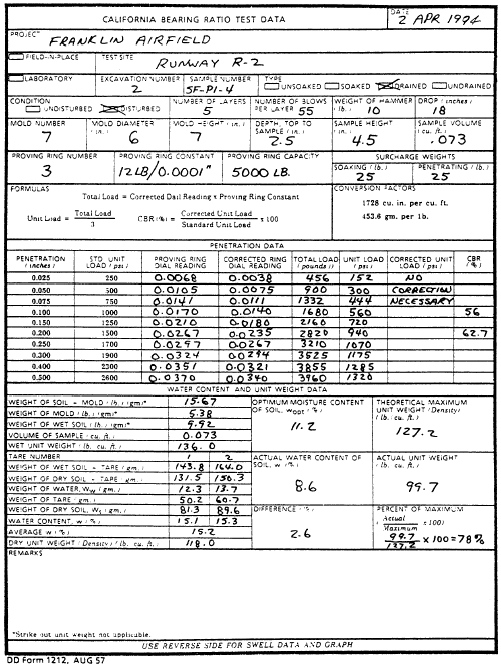 CALIFORNIA BEARING RATIO TEST DATA
DATE 2 APR 1994
PROJECT FRANKLIN AIRFIELD
FIELD-IN-PLACE TEST SITE RUNWAY R-2
LABORATORY EXCAVATION NUMBER 2 SAMPLE NUMBER SF-P1-4 TYPE UNSOAKED SOAKED DRAINED UNDRAINED
CONDITION UNDISTURBED DISTURBED NUMBER OF LAYERS 5 NUMBER OF BLOWS PER LAYER 55 WEIGHT OF HAMMER (lb.) 10 DROP (inches) 18
MOLD NUMBER 7 MOLD DIAMETER (in.) 6 MOLD HEIGHT (in.) 7 DEPTH, TOP TO SAMPLE (in.) 2.5 SAMPLE HEIGHT (in.) 4.5 SAMPLE VOLUME (cu. ft.) .073
PROVING RING NUMBER 3 PROVING RING CONSTANT 12LB/0.0001" PROVING RING CAPACITY 5000 LB. SURCHARGE WEIGHTS
SOAKING (lb.) 25 PENETRATING (lb.) 25
FORMULAS
Total Load = Corrected Dail Reading x Proving Ring Constant
Unit Load = Total Load / 3 CBR (%) = Corrected Unit Load / Standard Unit Load x 100
CONVERSION FACTORS
1728 cu. in. per cu. ft.
453.6 gm. per lb.
PENETRATION DATA
PENETRATION (inches) STD UNIT LOAD (psi) PROVING RING DIAL READING CORRECTED RING DIAL READING TOTAL LOAD (pounds) UNIT LOAD (psi) CORRECTED UNIT LOAD (psi) CBR (%)
0.025 250 0.0068 0.0038 456 152 NO
0.050 500 0.0105 0.0075 900 300 CORRECTION
0.075 750 0.0141 0.0111 1332 444 NECESSARY
0.100 1000 0.0170 0.0140 1680 560 56
0.150 1250 0.0210 0.0180 2160 720
0.200 1500 0.0267 0.0235 2820 940 62.7
0.250 1700 0.0297 0.0267 3210 1070
0.300 1900 0.0324 0.0294 3525 1175
0.400 2300 0.0351 0.0321 3855 1285
0.500 2600 0.0370 0.0340 3960 1320
WATER CONTENT AND UNIT WEIGHT DATA
WEIGHT OF SOIL + MOLD (lb.) (gm)* 15.67
WEIGHT OF MOLD (lb.) (gm)* 5.38
WEIGHT OF WET SOIL (lb.) (gm)* 9.92
VOLUME OF SAMPLE (cu. ft.) 0.073
WET UNIT WEIGHT (lb. cu. ft.) 136.0
OPTIMUM MOISTURE CONTENT OF SOIL, wOPT (%) 11.2
THEORETICAL MAXIMUM UNIT WEIGHT (Density) (lb. cu. ft.) 127.2
TARE NUMBER 1 2
WEIGHT OF WET SOIL + TARE (gm.) 143.8 164.0
WEIGHT OF DRY SOIL + TARE (gm.) 131.5 150.3
WEIGHT OF WATER, Ww (gm.) 12.3 13.7
WEIGHT OF TARE (gm.) 50.2 60.7
WEIGHT OF DRY SOIL, Ws (gm.) 81.3 89.6
WATER CONTENT, w (%) 15.1 15.3
AVERAGE w (%) 15.2
DRY UNIT WEIGHT (Density) (lb. cu. ft.) 118.0
ACTUAL WATER CONTENT OF SOIL, w (%) 8.6
ACTUAL UNIT WEIGHT (lb. cu. ft.) 99.7
DIFFERENCE (%) 2.6
PERCENT OF MAXIMUM
(Actual / Maximum x 100)
99.7 / 127.2 x 100 = 78%
REMARKS
*Strike out unit weight not applicable.
USE REVERSE SIDE FOR SWELL DATA AND GRAPH
DD Form 1212, AUG 57